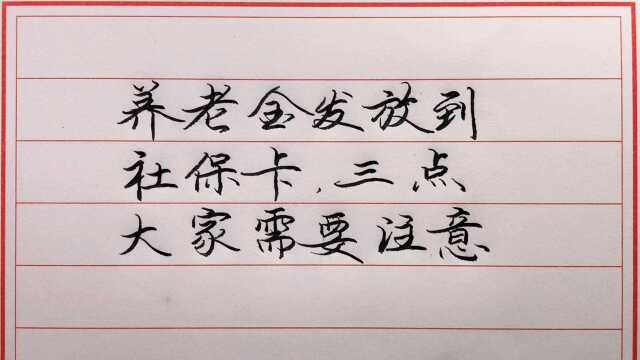 养老金发放到
社保卡，三点
大家需要注意